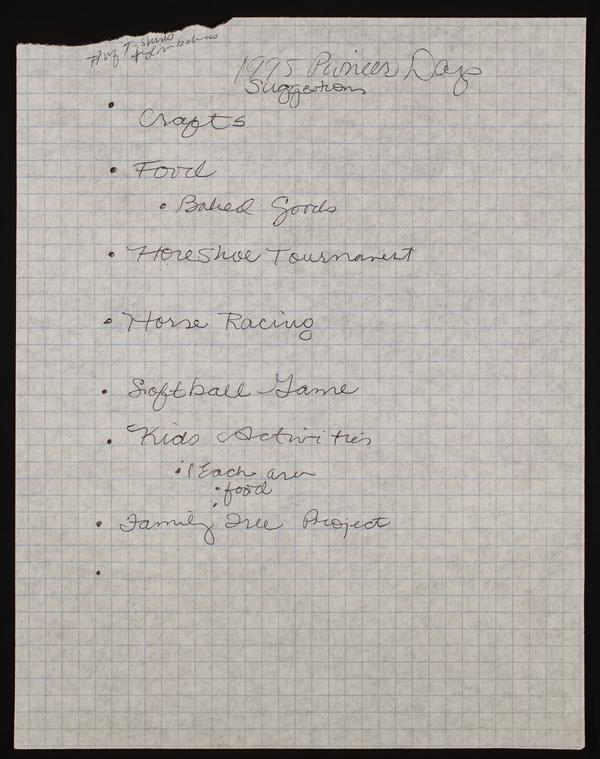 # of T-Shirts
1995 Pioneer Days
Suggestions
• Crafts
• Food
• Baked Goods
• Horeshoe Tournament
• Horse Racing
• Softball Game
• Kids Activities
• 1 Each area
• food
•
• Family Tree Project
•